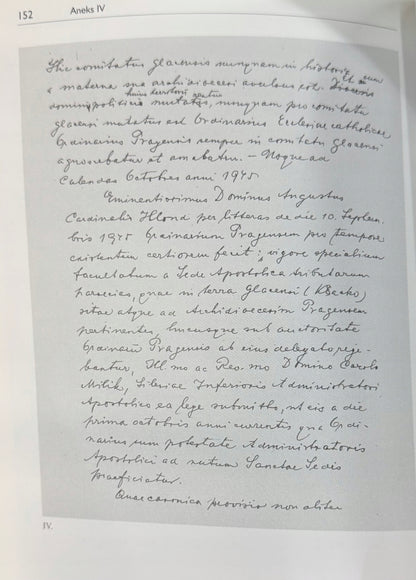 152 Aneks IV
Hic comitatus glacensis nunquam in historia sua
a materna sua archidioecesi avulsus est. Et si
dominus politicus huius territorii mutatus, nunquam pro comitatu
glacensi mutatus est Ordinarius Ecclesiae catholicae
Ordinarius Pragensis semper in comitatu glacensi
agnoscebatur et amabatur. – Usque ad
Calendas Octobres anni 1945
Eminentissimus Dominus Augustus
Cardinalis Hlond per litteras de die 10. Septem
bris 1945 Ordinarium Pragensem pro tempore
existentem certiorem fecit; vigore specialium
facultatum a Sede Apostolica tributarum
paroecias, quae in terra Glacensi (Kłacko)
sitae atque ad Archidioecesim Pragensem
pertinentes, hucusque sub auctoritate
Ordinarii Pragensis ab eius delegato rege-
bantur, Ill. mo ac Rev. mo Domino Carolo
Milik, Silesiae Inferioris Administratori
Apostolico ea lege submitto, ut eis a die
prima octobris anni currentis qua Ordi-
narius cum potestate Administratoris
Apostolici ad nutum Sanctae Sedis
praeficiatur.
Quae canonica provisio non aliter
IV.